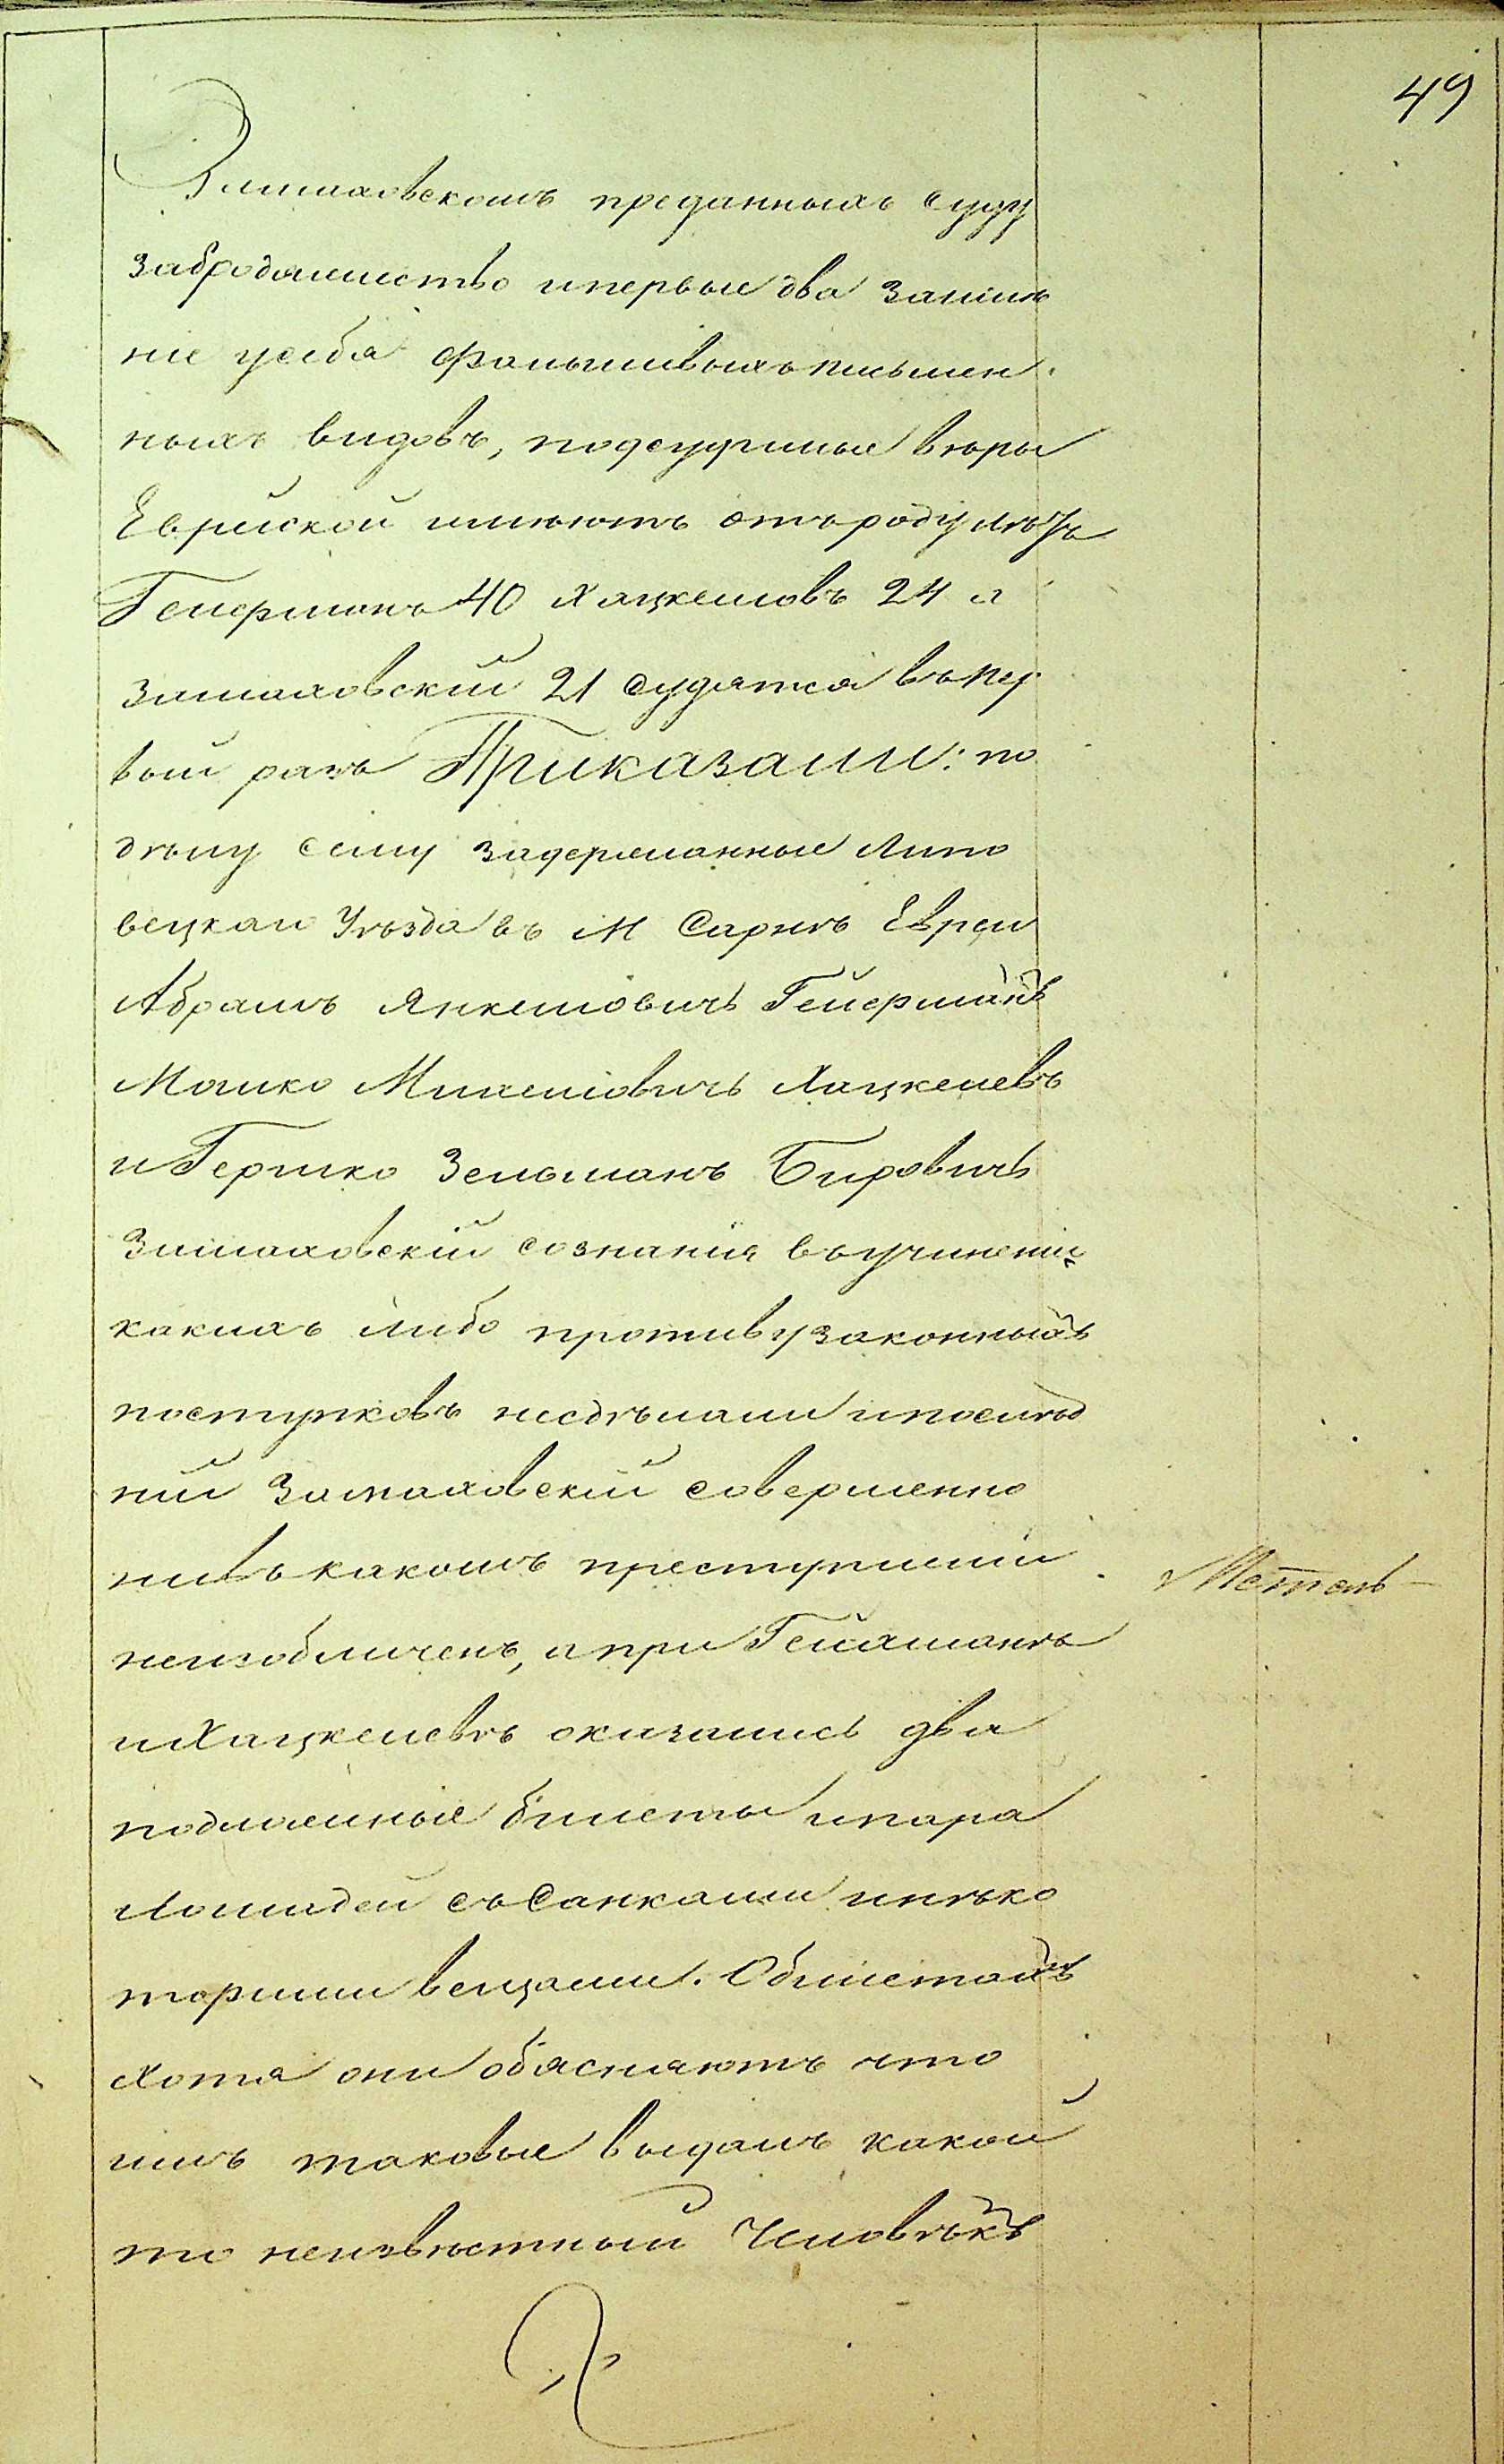 49
Зимаховскомъ преданныхъ суду
забродяжество ипервые два заимѣ
ніе усебя фальшивыхъ письмен
ныхъ видовъ, подсудимые вѣры
Еврейской имѣютъ отъ роду лѣтъ
Гейерманъ 40 Хацкелевъ 24 а
Зимаховскій 21 судятся въ пер
вый разъ Приказали: по
дѣлу сему задержанные Липо
вецкаго Уѣзда въ М Сарнѣ Евреи
Абрамъ Янкелiовичъ Гейерманъ
Мошко Михелiовичъ Хацкелевъ
и Гершко Зельманъ Бировичъ
Зимаховскій сознанія въ учиненіи
какихъ либо противузаконныхъ
поступковъ несдѣлали ипослѣд
ній Зимаховскій совершенно
нивъ какомъ преступленіи
неизобличенъ, а при Гейерманѣ
и Хацкелевѣ оказались два
подложные билеты ипара
Лошадей съ Санками инѣко
торыми вещами. О билетахъ
хотя они объясняютъ что
имъ таковые выдалъ какой
то неизвѣстный Человѣкъ